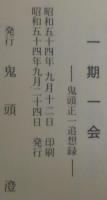 一期一会
――鬼頭正一追想録――
昭和五十四年九月十二日 印刷
昭和五十四年九月二十四日 発行
発行 鬼頭澄